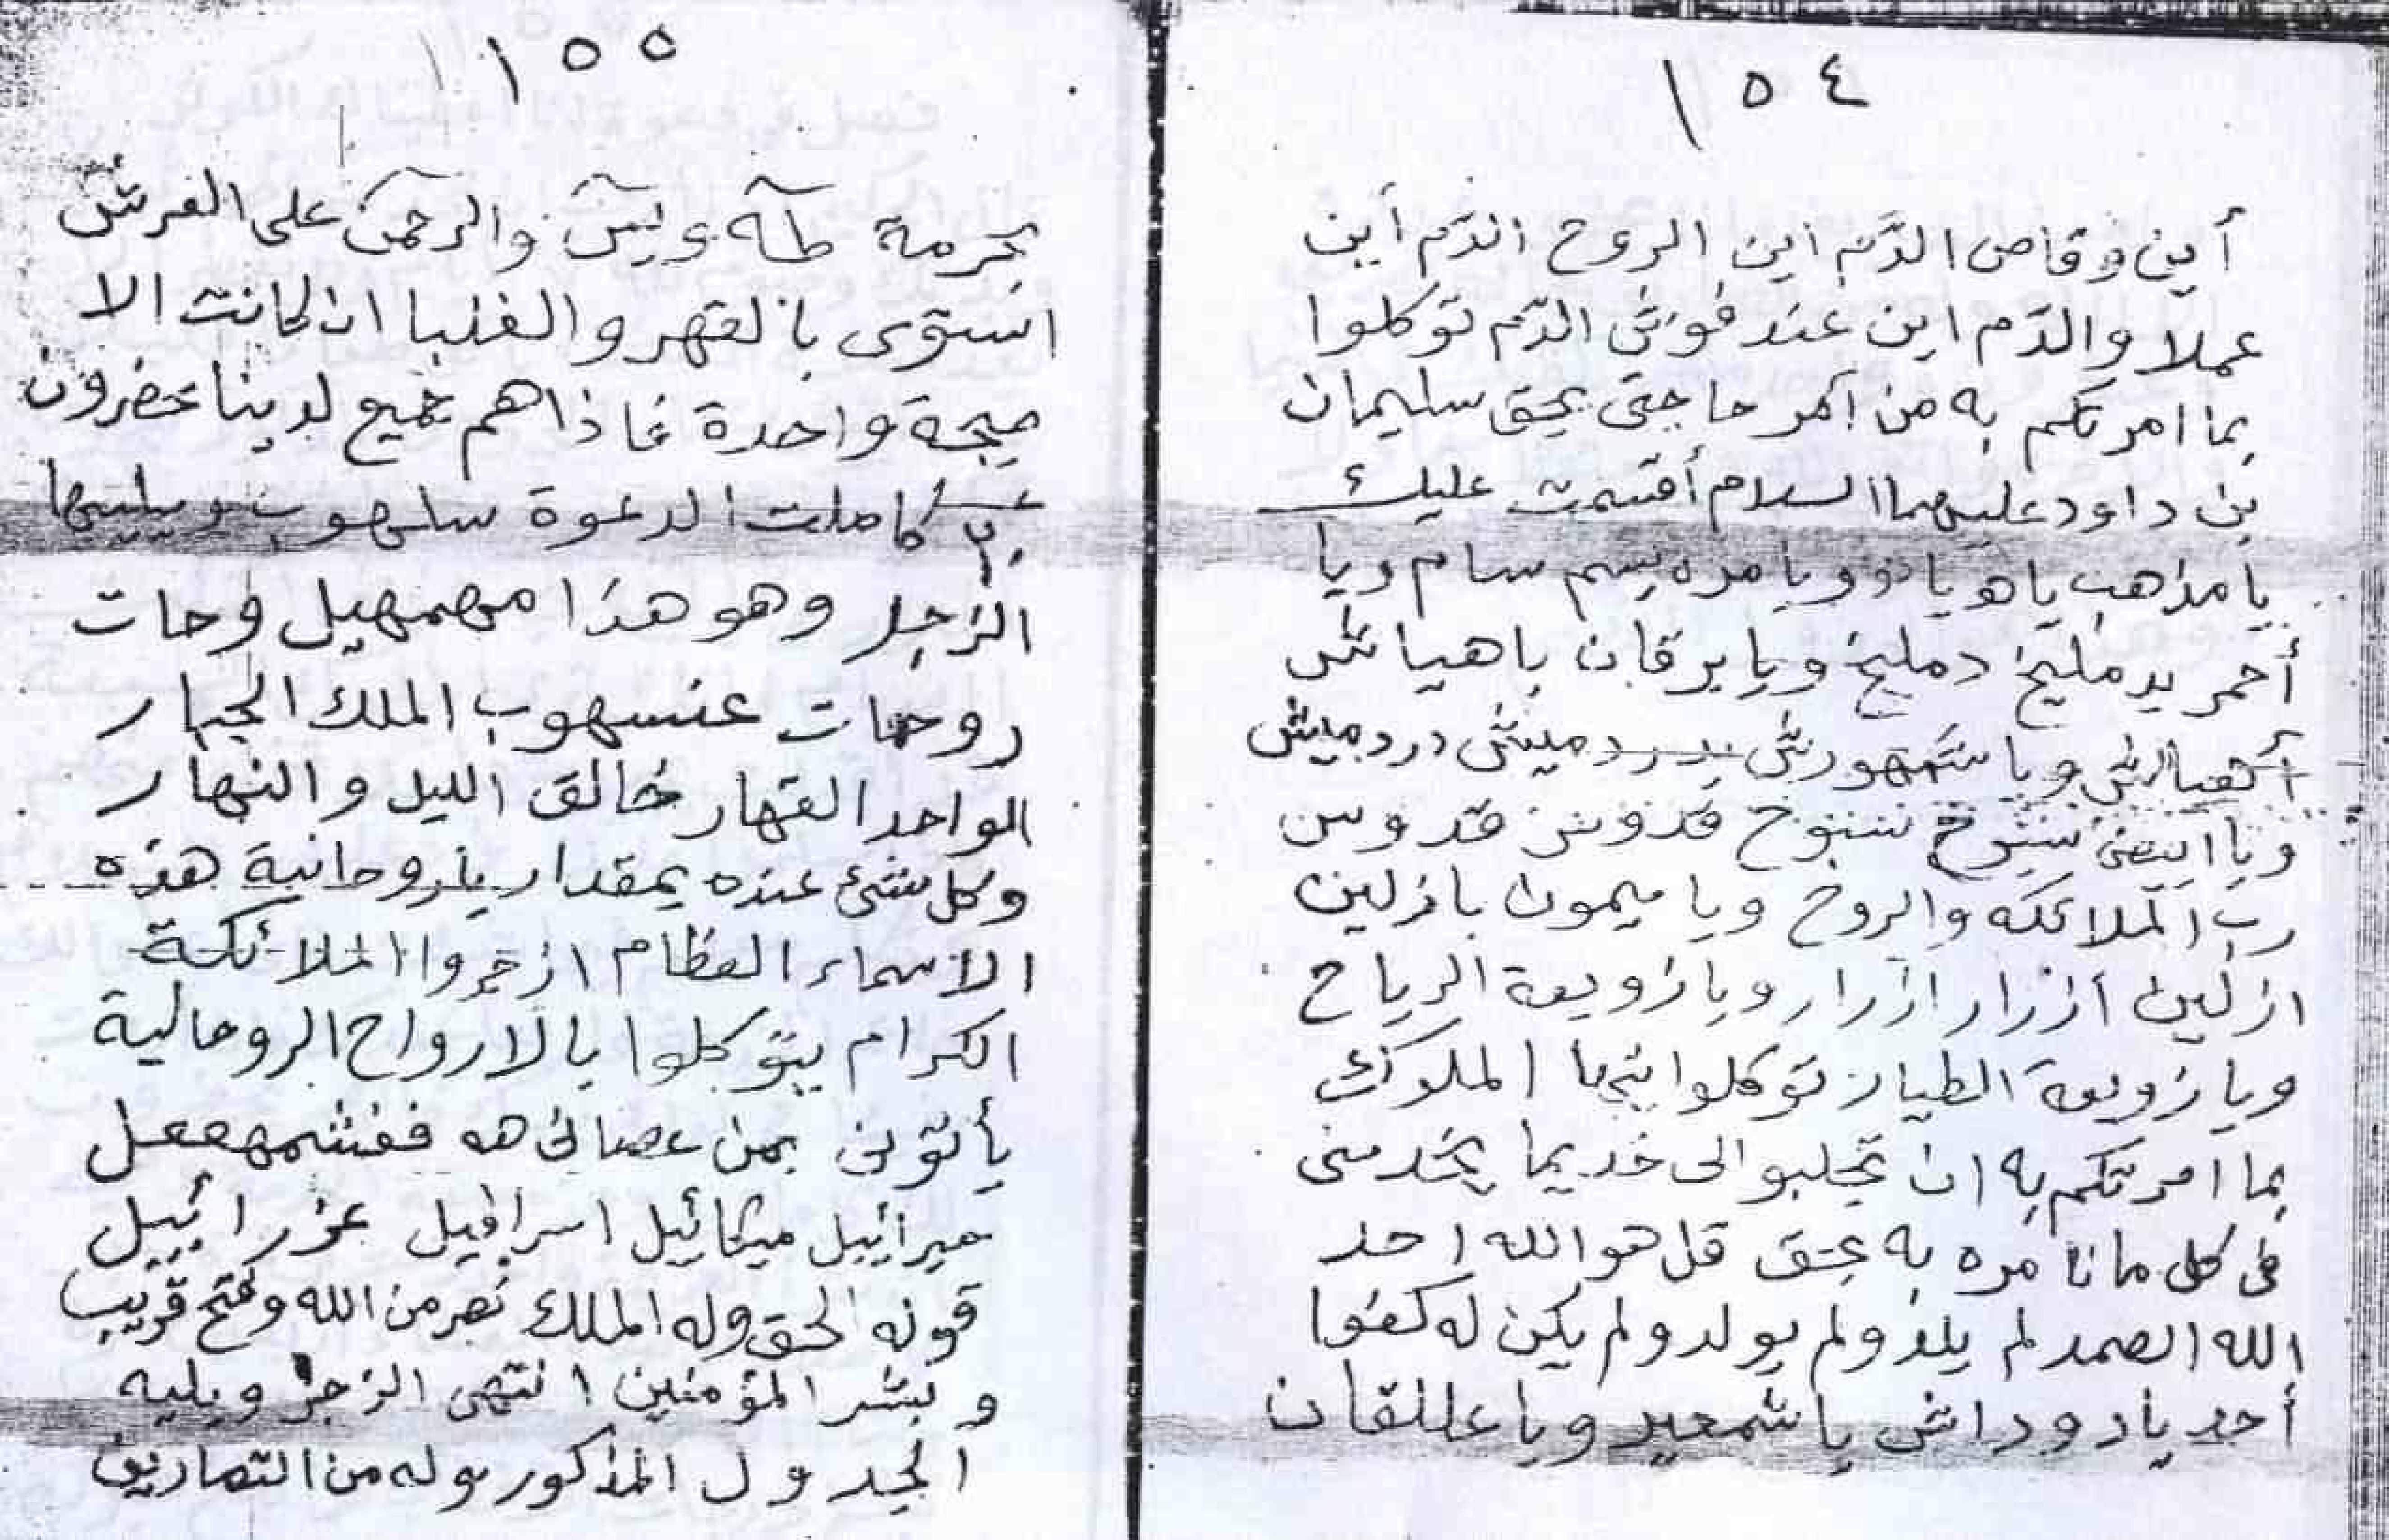 ١٥٤
أين وقاص الدّم اين الروح الدّم أين
عملا والدّم اين عند فوش الدّم توكلوا
بما امرتكم به من أمر حاجتى بحق سليمان
بن داود عليهما السلام أقسمت عليك
يا مذهب ياه ياه و ويا مره بسم سام ويا
أحمر بدمليخ دمليخ ويا برقان باهيا شر
ويا شمهورش بدردميش دردميش
ويا ابيض سبوح سبوح قدوس قدوس
رب الملائكه والروح ويا ميمون بازلين
ازلين أزرار ازرار ويا زوبعة الرياح
ويا زوبعة الطيار توكلوا ايها الملوك
بما امرتكم به ان تجلبو الى خديما يخدمنى
فى كل مانا مره به بحق قل هو الله احد
الله الصمد لم يلد ولم يولد ولم يكن له كفوا
أحد يا دوداش يا شمعيد ويا عللقان
١٥٥
بحرمة طآه ويسٓ والرحمن على العرش
استوى بالقهر والغلبا ان كانت الا
صيحة واحدة فاذا هم جميع لدينا محضرون
كاملت الدعوة سلهوب ويليها
الزجر وهو هذا مهمهيل وحات
روحات عنسهوب الملك الجبار
الواحد القهار خالق الليل والنهار
وكل شئ عنده بمقدار ياروحانية هذه
الاسماء العظام ازجروا الملائكة
الكرام يتوكلوا بالارواح الروحانية
يأتونى بمن عصانى هه ففشمهعل
جبرأئيل ميكائيل اسرافيل عزرائيل
قوله الحق وله الملك نصر من الله وفتح قريب
وبشر المؤمنين انتهى الزجر ويليه
الجدول المذكور وله من التصاريف